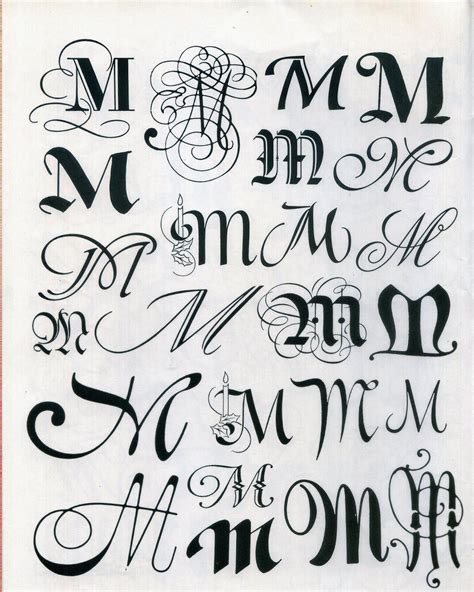 M M M M
M M M
M M M M
M M M M
M M M M
M M M M M